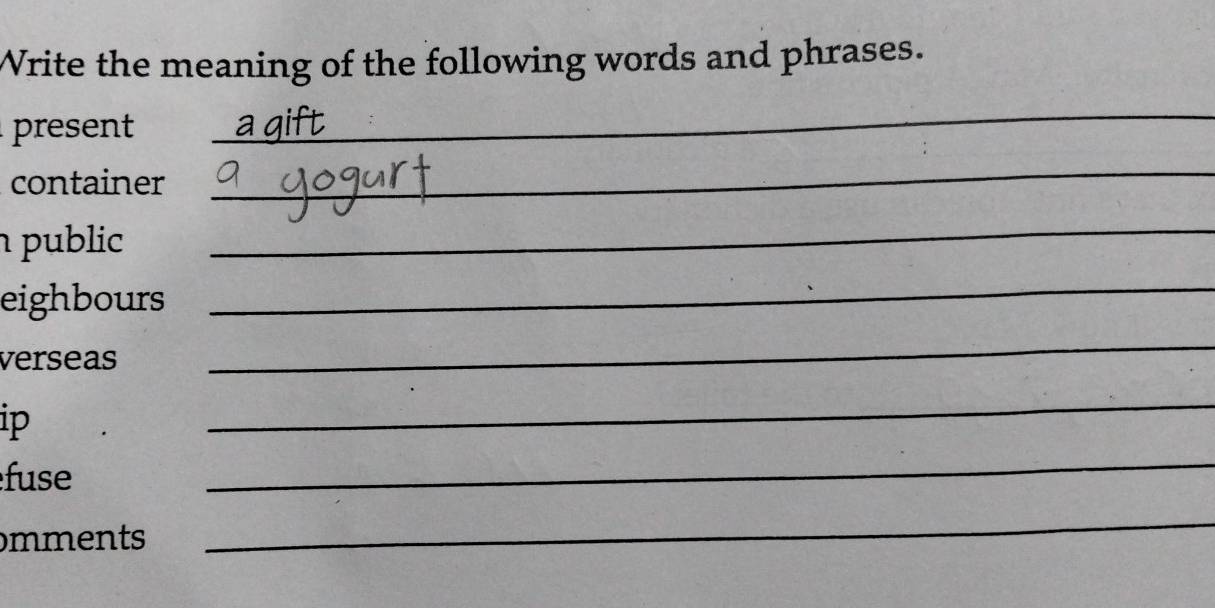 Write the meaning of the following words and phrases.
present a gift
container a yogurt
public
eighbours
verseas
ip
fuse
omments